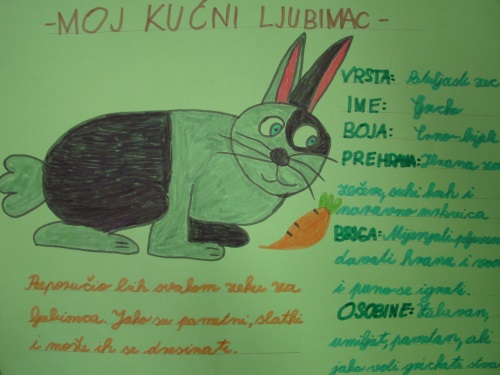 -MOJ KUĆNI LJUBIMAC-
VRSTA: Patuljasti zec
IME: Gricko
BOJA: Crno-bijela
PREHRANA: Hrana za
zečeve, suhi kruh i
naravno mrkvica
BRIGA: Mijenjati piljevinu
davati hranu i vodu
i puno se igrati.
OSOBINE: Zabavan,
umiljat, pametan, ali
jako voli grickati
Preporučio bih svakom zeku za
ljubimca. Jako su pametni, slatki
i može ih se dresirati.